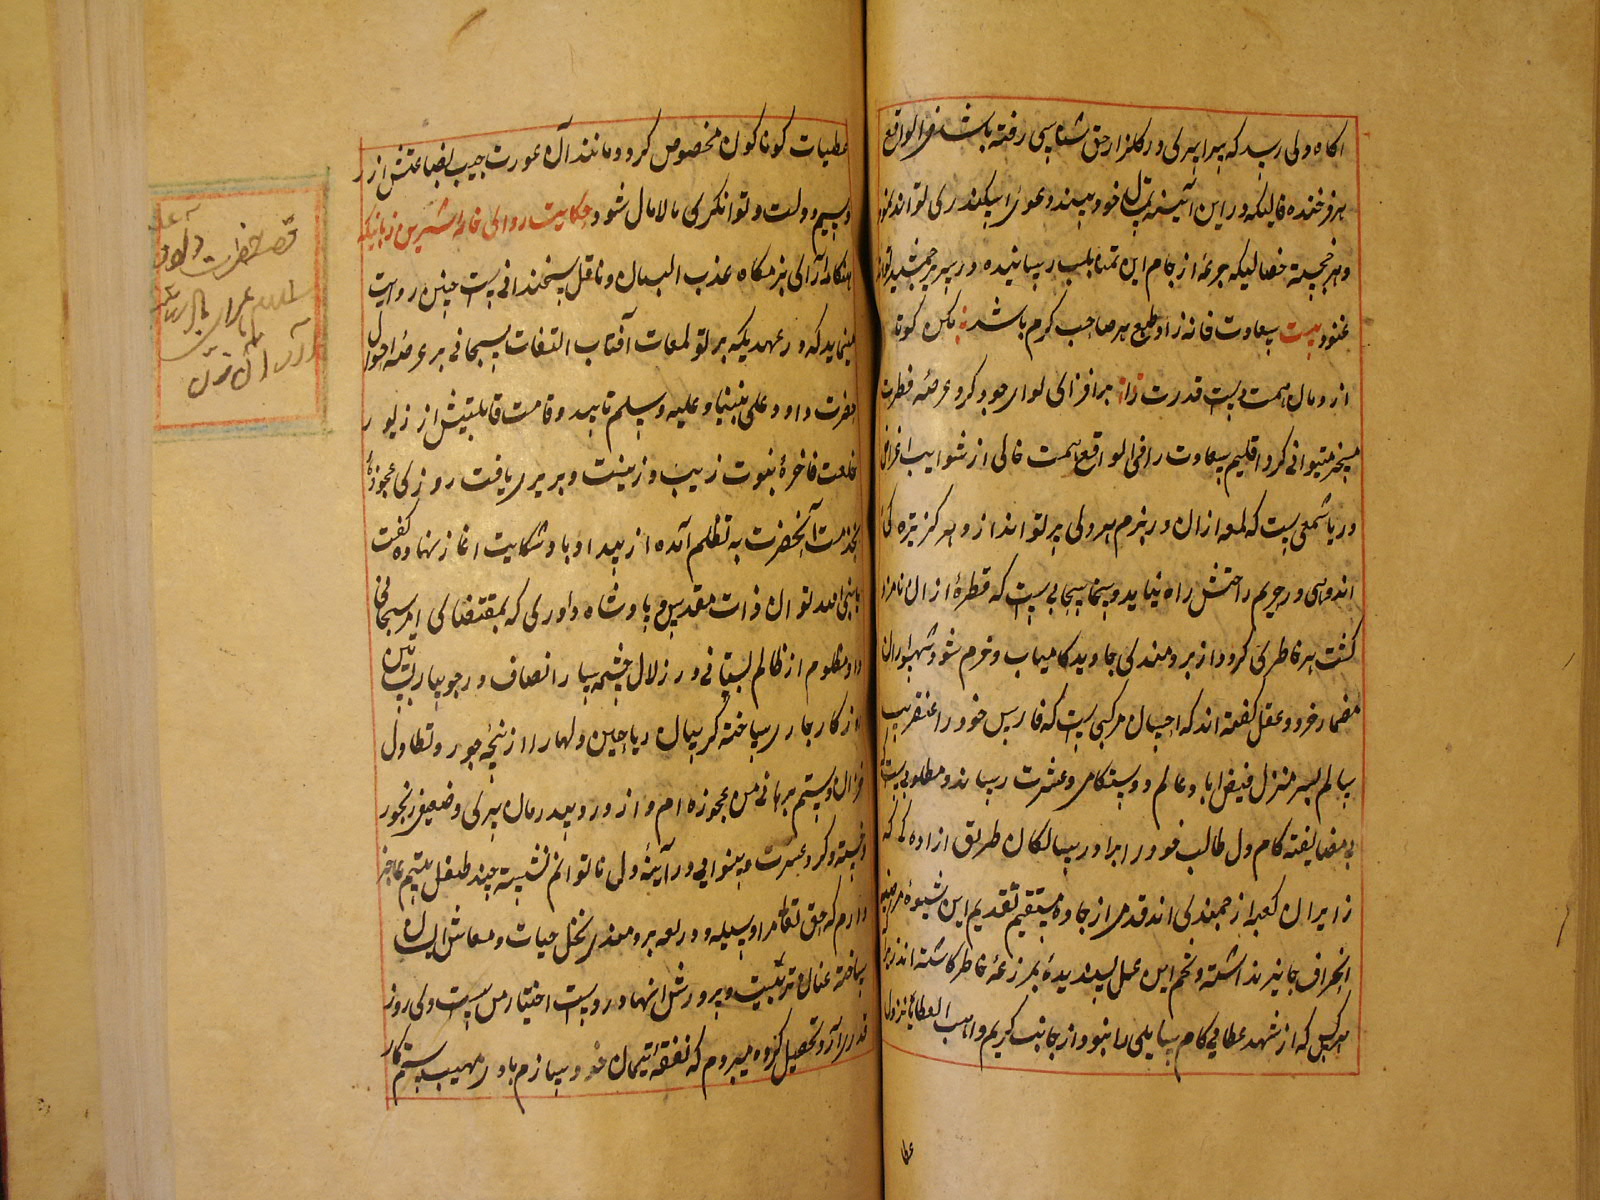 اکاه دلی رسد که پیرا پیری در کلزار حق شناسی رفته باشد فی الواقع
هر فرخنده فالیکه در این آئینه تمثال خود بیند دعوی اسکندری تواند نمود
و هر خجسته خصالیکه جرعهٔ از جام این تمنا بلب رسانیده در بزم جمشید تواند
غنود بیت سعادت خانه زاد طبع هر صاحب کرم باشد
از و مال همت دست قدرت بر افرازی لوای جود کرد و عرصهٔ فطرت
مسخر میتوانی کرد اقلیم سعادت را فی الواقع همت خالی از شوایب اغراض
و ریا شمعی است که لمعه از ان در بزم هر دلی پرتو اندازد هرکز تیره کئ
اندوهی در حریم راحتش راه نیابد و سخا سحابی است که قطرهٔ از ان نامزد
کشت هر خاطری کردد از برومندی جاوید کامیاب و خرم شود شهسواران
مضمار خرد و عقل کفته اند که احسان مرکبی است که فارس خود را عنقریب
سالم بسر منزل فیض اباد عالم دوستکامی و عشرت رساند و مطلوبی است که
بی مضایقه کام دل طالب خود را برآورد سالکان طریق اراده که
زایران کعبه ارجمندی اند قدم از جاده مستقیم تقدیم این شیوه مرضیه
انحراف جایز نداشته و تخم این عمل پسندیده بمزرعهٔ خاطر کاشته اند زیرا
هرکس که از شهد عطا فی کام سایلی را بنمود از جانب کریم واهب العطایا بنزول
عطا
عطیات کوناکون مخصوص کردد و مانند آن عورت جیب بضاعتش از زر
و سیم و دولت و توانکری مالامال شود حکایت روائی خامه شیرین زبانیکه
هنکامه آرائی بزمکاه عذب البیان و ناقل سخندانی است چنین روایت
مینماید که در عهدیکه پرتو لمعات آفتاب التفات سبحانی بر عرصهٔ احوال
حضرت داود علی نبینا و علیه و سلم تابید و قامت قابلیتش از زیور
خلعت فاخرهٔ نبوت زیب و زینت و برتری یافت روزی عجوزهٔ
بخدمت آنحضرت به تظلم آمده از بیداد باد شکایت اغاز نهاده کفت
یا نبی الله توان ذات مقدس و پادشاه داوری که بمقتضای امر سبحانی
داد مظلوم از ظالم بستانی و از زلال چشمه سار انصاف در جویبار
روزکار جاری ساخته کریبان ریاحین دلها را از پنجهٔ جور و تطاول
خزان ستم برهانی من عجوزه ام و از درد بیدرمان پیری و ضعیفی رنجور
و خسته و کرد عسرت و بینوایی در آئینهٔ دل ناتوانم نشسته چند طفل یتیم عاجز
دارم که حق تعالی مرا وسیله و ذریعه برومندی نخل حیات و معاش ایشان
ساخته عنان تربیت و پرورش انها در دست اختیار من است ولی روز
قدری آرد تحصیل کرده میبردم که نفقهٔ یتیمان خود سازم باد مهیب ستمکار
قصه حضرت داود